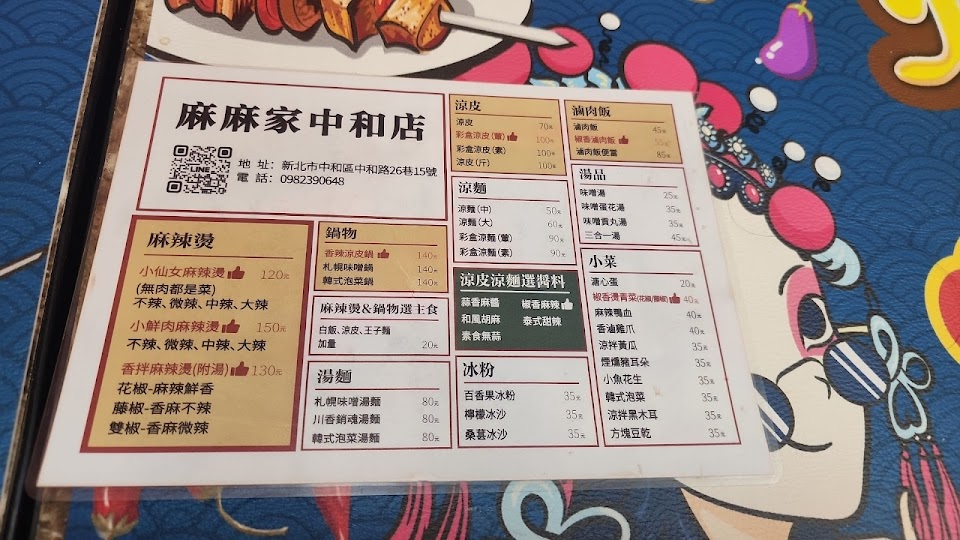 麻麻家中和店
LINE
地 址: 新北市中和區中和路26巷15號
電 話: 0982390648
麻辣燙
小仙女麻辣燙 120元
(無肉都是菜)
不辣、微辣、中辣、大辣
小鮮肉麻辣燙 150元
不辣、微辣、中辣、大辣
香拌麻辣燙(附湯) 130元
花椒-麻辣鮮香
藤椒-香麻不辣
雙椒-香麻微辣
鍋物
香辣涼皮鍋 140元
札幌味噌鍋 140元
韓式泡菜鍋 140元
麻辣燙&鍋物選主食
白飯、涼皮、王子麵
加量 20元
湯麵
札幌味噌湯麵 80元
川香銷魂湯麵 80元
韓式泡菜湯麵 80元
涼皮
涼皮 70元
彩盒涼皮(葷) 100元
彩盒涼皮(素) 100元
涼皮(斤) 100元
涼麵
涼麵(中) 50元
涼麵(大) 60元
彩盒涼麵(葷) 90元
彩盒涼麵(素) 90元
涼皮涼麵選醬料
蒜香麻醬 椒香麻辣
和風胡麻 泰式甜辣
素食無蒜
冰粉
百香果冰粉 35元
檸檬冰沙 35元
桑葚冰沙 35元
滷肉飯
滷肉飯 45元
椒香滷肉飯 55元
滷肉飯便當 85元
湯品
味噌湯 25元
味噌蛋花湯 35元
味噌貢丸湯 35元
三合一湯 45元
小菜
溏心蛋 20元
椒香燙青菜(花椒/藤椒) 40元
麻辣鴨血 40元
香滷雞爪 40元
涼拌黃瓜 35元
煙燻豬耳朵 35元
小魚花生 35元
韓式泡菜 35元
涼拌黑木耳 35元
方塊豆乾 35元